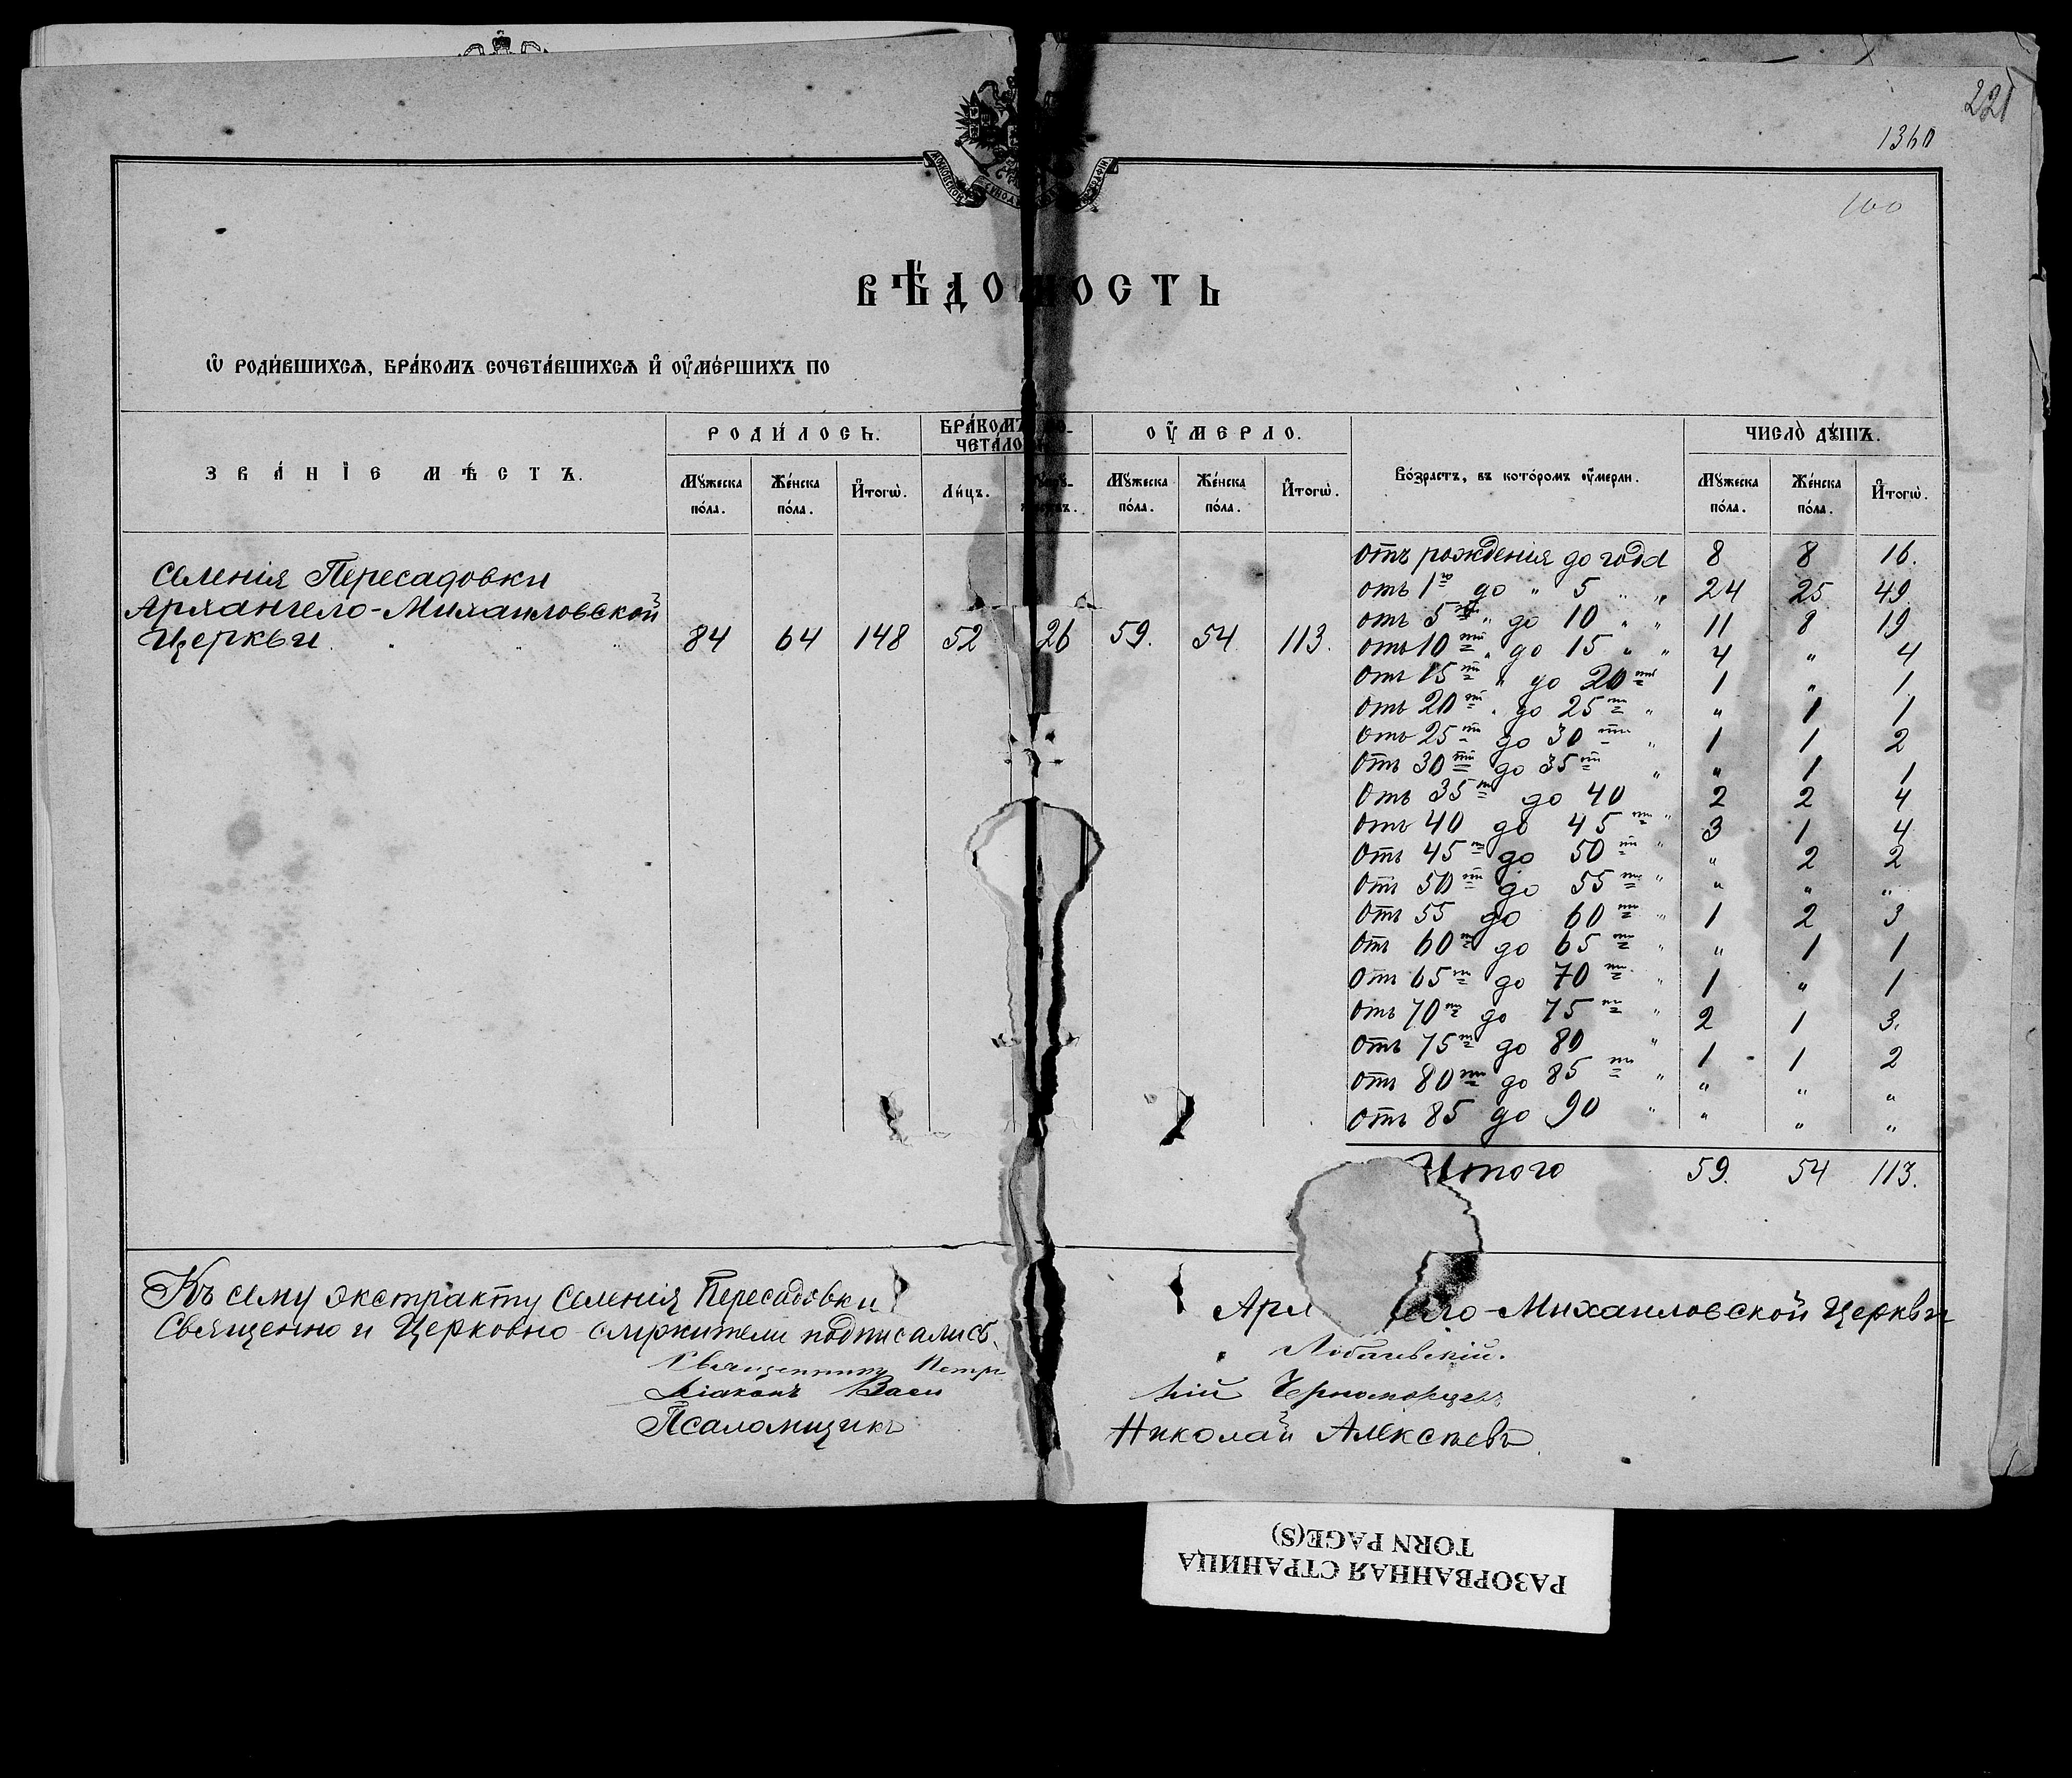 221
1360
100
ВѢДОМОСТЬ
Ѡ РОДИ́ВШИХСѦ, БРА́КОМЪ СОЧЕТА́ВШИХСѦ И҆ ОУ҆МЕ́РШИХЪ ПО
ЗВА́НІЕ МѢ́СТЪ.
РОДИ́ЛОСЬ.
БРА́КОМЪ СО-
ЧЕТА́ЛОСЬ
ОУ҆МЕРЛО.
Во́зрастъ, въ кото́ромъ оу҆мерли.
ЧИСЛО̀ ДꙊ́ШЪ.
Мꙋ́жеска по́ла. Же́нска по́ла. И҆тогѡ̀. Ли́цъ. Мꙋ́жеска по́ла. Же́нска по́ла. И҆тогѡ̀. Мꙋ́жеска по́ла. Же́нска по́ла. И҆тогѡ̀.
Селенія Пересадовки
Архангело-Михаиловской
Церкви 84 64 148 52 26 59. 54 113.
Отъ рожденія до года 8 8 16.
отъ 1го до " 5 " " 24 25 49
отъ 5ти " до 10 " " 11 8 19
отъ 10ти " до 15 " " 4 " 4
отъ 15ти " до 20ти 1 " 1
отъ 20ти " до 25ти " " 1 1
отъ 25ти до 30ти " 1 1 2
отъ 30ти до 35ти " " 1 1
отъ 35ти до 40 2 2 4
отъ 40 до 45ти " 3 1 4
отъ 45ти до 50ти " " 2 2
отъ 50ти до 55ти " " " "
отъ 55 до 60ти " 1 2 3
отъ 60ти до 65ти " " 1 1
отъ 65ти до 70ти " 1 " 1
отъ 70ти до 75ти " 2 1 3.
отъ 75ти до 80 " 1 1 2
отъ 80ти до 85ти " " " "
отъ 85 до 90 " " " "
Итого 59. 54 113.
Къ сему экстракту Селенія Пересадовки Арх ело-Михаиловской Церкви
Священно и Церковно-служители подписались.
Священникъ Петръ
Діаконъ Васи лій Черноморцевъ
Псаломщикъ Николай Алексѣевъ.
РАЗОРВАННАЯ СТРАНИЦА
TORN PAGE(S)